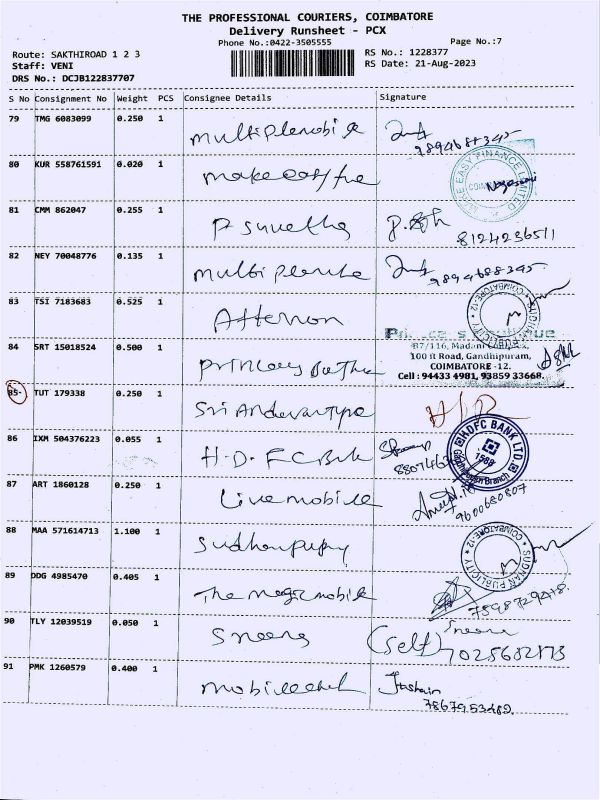 THE PROFESSIONAL COURIERS, COIMBATORE
Delivery Runsheet - PCX
Phone No.:0422-3505555
Page No.:7
Route: SAKTHIROAD 1 2 3
RS No.: 1228377
Staff: VENI
RS Date: 21-Aug-2023
DRS No.: DCJB122837707
S No Consignment No Weight PCS Consignee Details Signature
79 TMG 6083099 0.250 1 multiplemobile
9894688345
80 KUR 558761591 0.020 1
EASY FINANCE LIMITED
81 CMM 862047 0.255 1 P suvetha
8124236511
82 NEY 70048776 0.135 1
9894688345
83 TSI 7183683 0.525 1
COIMBATORE-12
SUDHAN PUBLICITY
84 SRT 15018524 0.500 1
87/116, Madani Complex,
100 ft Road, Gandhipuram,
COIMBATORE -12.
Cell : 94433 4981, 93859 33668.
85- TUT 179338 0.250 1
86 IXM 504376223 0.055 1 H.D.FC Bank
HDFC BANK LTD.
Gandhipuram Branch
1988
87 ART 1860128 0.250 1 Live mobile
9600680807
88 MAA 571614713 1.100 1
COIMBATORE-12
SUDHAN PUBLICITY
89 DDG 4985470 0.405 1 The magic mobile
7598729418
90 TLY 12039519 0.050 1 Sneena
(self)
7025682873
91 PMK 1260579 0.400 1
7867953482